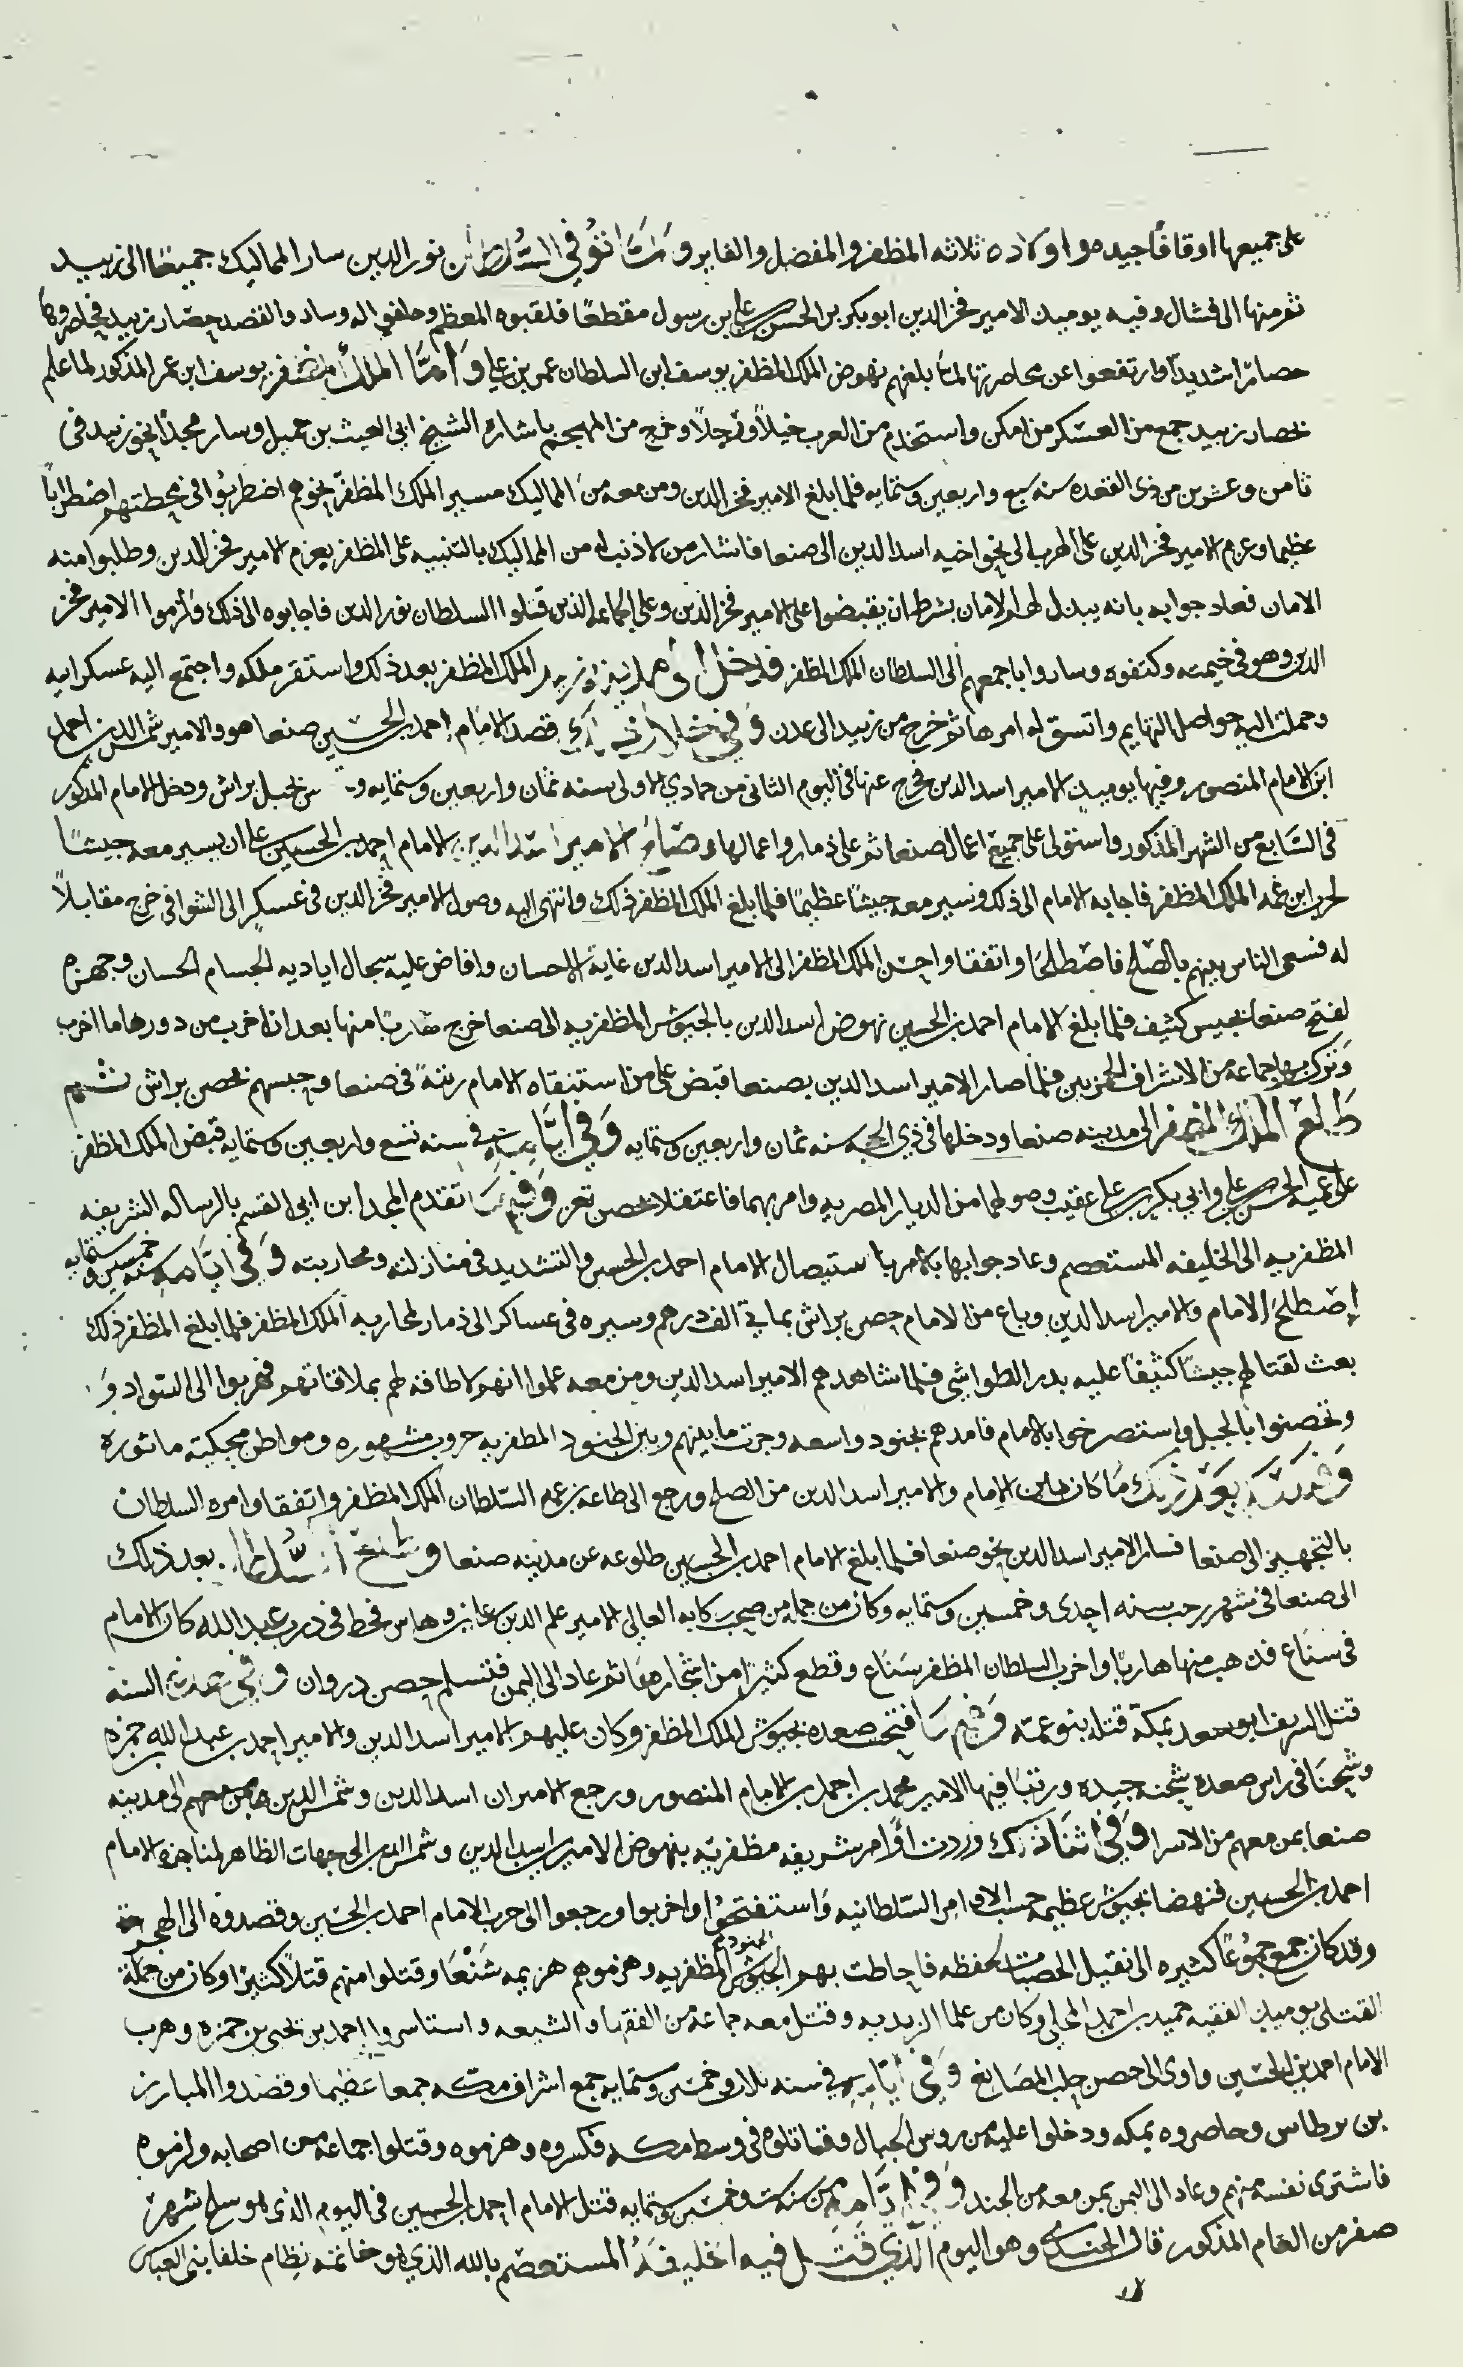 على جميعها اوقافا جيده واولاده ثلاثه المظفر والمفضل والفايز ولما توفي السلطان نور الدين سار المماليك جميعا الى زبيد
ثم منها الى فشال وفيه يوميد الامير فخر الدين ابو بكر بن الحسن بن علي بن رسول مقطعا فلقبوه المعظم وحلفو اله وساروا لقصد حصار زبيد فحاصروها
حصارا شديدا وارتفعوا عن محاصرتها لما بلغهم نهوض الملك المظفر يوسف ابن السلطان عمر بن علي واما الملك المظفر يوسف ابن عمر المذكور لما علم
حصار زبيد جمع من العسكر من امكن واستخدم من العرب خيلا ورجلا وخرج من المهجم باشاره الشيخ ابي الغيث بن جميل وسار مجدا نحو زبيد في
ثامن وعشرين من ذى القعده سنه سبع واربعين وستمايه فلما بلغ الامير فخر الدين ومن معه من المماليك مسير الملك المظفر نحوهم اضطربوا في محطتهم اضطرابا
عظيما وعزم الامير فخر الدين على الهرب الى نحو اخيه اسد الدين الى صنعا فاشار من لا ذنب له من المماليك بالتنبيه على المظفر بعزم الامير فخر الدين وطلبوا منه
الامان فعاد جوابه بانه يبذل لهم الامان بشرط ان يقبضوا على الامير فخر الدين وعلى الجماعه الذين قتلوا السلطان نور الدين فاجابوه الى ذلك ولزموا الامير فخر
الدين وهو في خيمته وكتفوه وساروا باجمعهم الى السلطان الملك المظفر فدخل الى مدينة زبيد الملك المظفر بعد ذلك واستقر ملكه واجتمع اليه عسكر ابيه
وحملت اليه حواصل التهايم واتسق له امرها ثم خرج من زبيد الى عدن وفي خلال ذلك قصد الامام احمد بن الحسين صنعا هو والامير شمس الدين احمد
ابن الامام المنصور وفيها يوميد الامير اسد الدين فخرج عنها في اليوم الثاني من جمادي الاولى سنه ثمان واربعين وستمايه جبل براش ودخل الامام المذكور
في السابع من الشهر المذكور واستولى على جميع اعمال صنعا ثم على ذمار واعمالها وصالح الامير اسد الدين الامام احمد بن الحسين على ان يسير معه جيشا
لحرب ابن عمه الملك المظفر فاجابه الامام الى ذلك وسير معه جيشا عظيما فلما بلغ الملك المظفر ذلك وانتهى اليه وصول الامير فخر الدين في عسكر الى الشوافي خرج مقابلا
له فسعى الناس بينهم بالصلح فاصطلحا واتفقا واحسن الملك المظفر الى الامير اسد الدين غاية الاحسان وافاض عليه سجال اياديه الجسام الحسان وجهزه
لفتح صنعا بجيش كثيف فلما بلغ الامام احمد بن الحسين نهوض اسد الدين بالجيوش المظفريه الى صنعا خرج هاربا منها بعد ان اخرب من دورها ما اخرب
وترك بها جماعة من الاشراف الحمزيين فلما صار الامير اسد الدين بصنعا قبض على من استبقاه الامام رتبة في صنعا وحبسهم بحصن براش ثم
طلع الملك المظفر الى مدينه صنعا ودخلها في ذي الحجه سنه ثمان واربعين وستمايه وفي ايامه في سنه تسع واربعين وستمايه قبض الملك المظفر
على عميه الحسن بن علي وابي بكر بن علي عقيب وصولهما من الديار المصريه وامر بهما فاعتقلا بحصن تعز وفيها تقدم المجد ابن ابي القسم بالرساله الشريفه
المظفريه الى الخليفه المستعصم وعاد جوابها بالامر باستيصال الامام احمد بن الحسين والتشديد في منازلته ومحاربته وفي ايامه سنه خمسين وستمايه
اصطلح الامام والامير اسد الدين وباع من الامام حصن براش بمايتي الف درهم وسيره في عساكر الى ذمار لمحاربه الملك المظفر فلما بلغ المظفر ذلك
بعث لقتالهم جيشا كثيفا عليه بدر الطواشي فلما شاهدهم الامير اسد الدين ومن معه علموا انهم لا طاقه لهم بملاقاتهم فهربوا الى السواد و
وتحصنوا بالجبل واستصرخوا بالامام فامدهم بجنود واسعه وجرت ما بينهم وبين الجنود المظفريه حروب مشهوره ومواطن محكيته ماثوره
وفسد بعد ذلك ما كان بين الامام والامير اسد الدين من الصلح ورجع الى طاعه بن عمه السلطان الملك المظفر واتفقا وامره السلطان
بالتجهيز الى صنعا فسار الامير اسد الدين نحو صنعا فلما بلغ الامام احمد بن الحسين طلوعه عن مدينه صنعا وطلع السلطان بعد ذلك
الى صنعا في شهر رجب سنه احدى وخمسين وستمايه وكان من جمله من صحب ركابه العالي الامير علم الدين علي بن وهاس فحط في درب عبد الله كان الامام
في سناع فذهب منها هاربا واخرب السلطان المظفر سناع وقطع كثيرا من اشجارها ثم عاد الى اليمن فتسلم حصن دروان وفي هذه السنه
قتل الشريف ابو سعد بمكة قتله بنو عمه وفيها افتتحت صعده بجيوش الملك المظفر وكان عليهم الامير اسد الدين والامير احمد بن عبد الله بن حمزه
وشحنا في راس صعدة شحنه جيده ورتبا فيها الامير محمد بن احمد بن الامام المنصور ورجع الاميران اسد الدين وشمس الدين معهم الى مدينه
صنعا بمن معهم من الاسرا وفي اثنا ذلك وردت اوامر شريفه مظفريه بنهوض الاميرين اسد الدين وشمس الدين الى جهات الظاهر لمناجزه الامام
احمد بن الحسين فنهضا بجيوش عظيمه حسب الاوامر السلطانيه واستفتحوا واخربوا ورجعوا الى حرب الامام احمد بن الحسين وقصدوه الى الهجرة
وقد كان جمع جموعا كثيره الى نقيل الحصبات لحفظه فاحاطت بهم الجنود الجيوش المظفريه وهزموهم هزيمه شنعا وقتلوا منهم قتلا كثيرا وكان من جملة
القتلى يوميذ الفقيه حميد بن احمد المحلي وكان من علما الزيديه وقتل معه جماعه من الفقها والشيعه واستاسروا احمد بن يحيى بن حمزه وهرب
الامام احمد بن الحسين واوى الى حصن حلب المصانع وفي ايامه في سنه ثلاث وخمسين وستمايه جمع اشراف مكه جمعا عظيما وقصدوا المبارز
بن برطاس وحاصروه بمكه ودخلوا عليه من روس الجبال وقاتلوه في وسط مكه فكسروه وهزموه وقتلوا جماعه من اصحابه ولزموه
فاشترى نفسه منهم وعاد الى اليمن بمن معه من الجند وفي ايامه من سنه ست وخمسين وستمايه قتل الامام احمد بن الحسين في اليوم الذى هو سلخ شهر
صفر من العام المذكور قال الجندي وهو اليوم الذي قتل فيه الخليفه المستعصم بالله الذي هو خاتمه نظام خلفا بني العباس